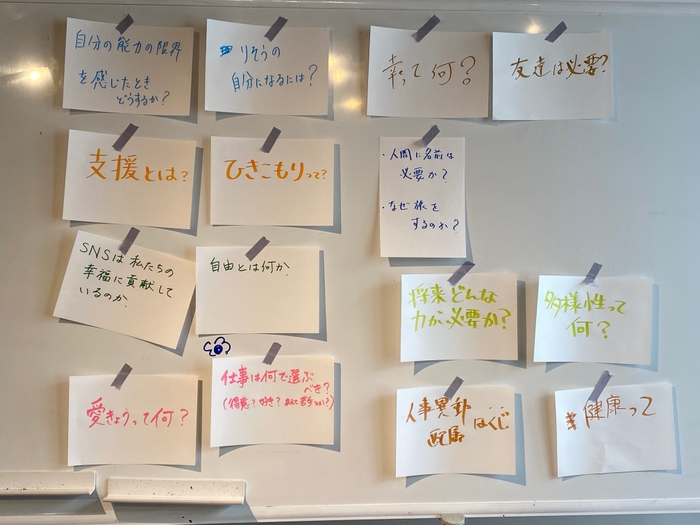 自分の能力の限界
を感じたとき
どうするか?
りそうの
自分になるには?
幸って何?
友達は必要?
支援とは?
ひきこもりって?
・人間に名前は
必要か?
・なぜ旅を
するのか?
SNSは私たちの
幸福に貢献して
いるのか
自由とは何か
将来どんな
力が必要か?
多様性って
何?
愛きょうって何?
仕事は何で選ぶ
べき?
(得意?好き?
人事異動
配属
はくじ
健康って